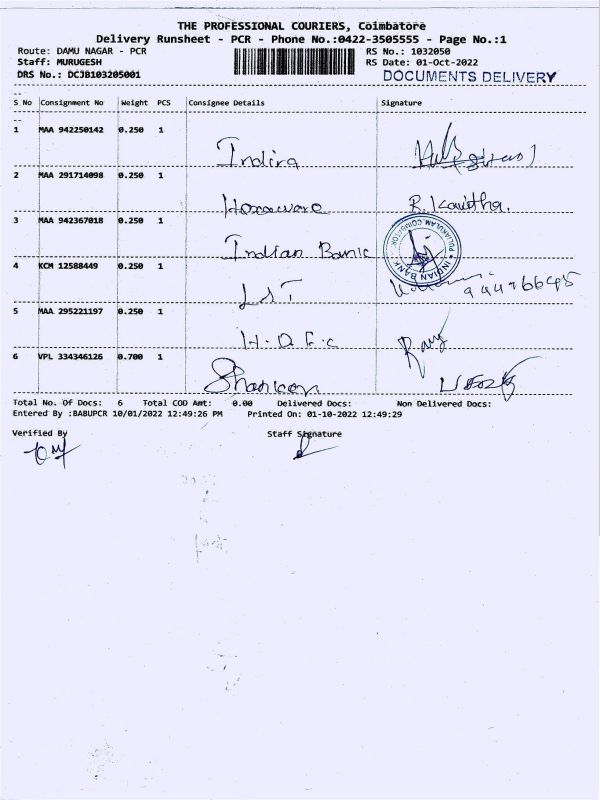 THE PROFESSIONAL COURIERS, Coimbatore
Delivery Runsheet - PCR - Phone No.:0422-3505555 - Page No.:1
Route: DAMU NAGAR - PCR RS No.: 1032050
Staff: MURUGESH RS Date: 01-Oct-2022
DRS No.: DCJB103205001 DOCUMENTS DELIVERY
S No Consignment No Weight PCS Consignee Details Signature
1 MAA 942250142 0.250 1 Indira
2 MAA 291714098 0.250 1 Hexaware R. Kavitha.
3 MAA 942367018 0.250 1 Indian Bank INDIAN BANK PULIAKULAM, COIMBATORE
4 KCM 12588449 0.250 1 L&T
5 MAA 295221197 0.250 1 H.D.F.C
6 VPL 334346126 0.700 1
Total No. Of Docs: 6 Total COD Amt: 0.00 Delivered Docs: Non Delivered Docs:
Entered By :BABUPCR 10/01/2022 12:49:26 PM Printed On: 01-10-2022 12:49:29
Verified By Staff Signature